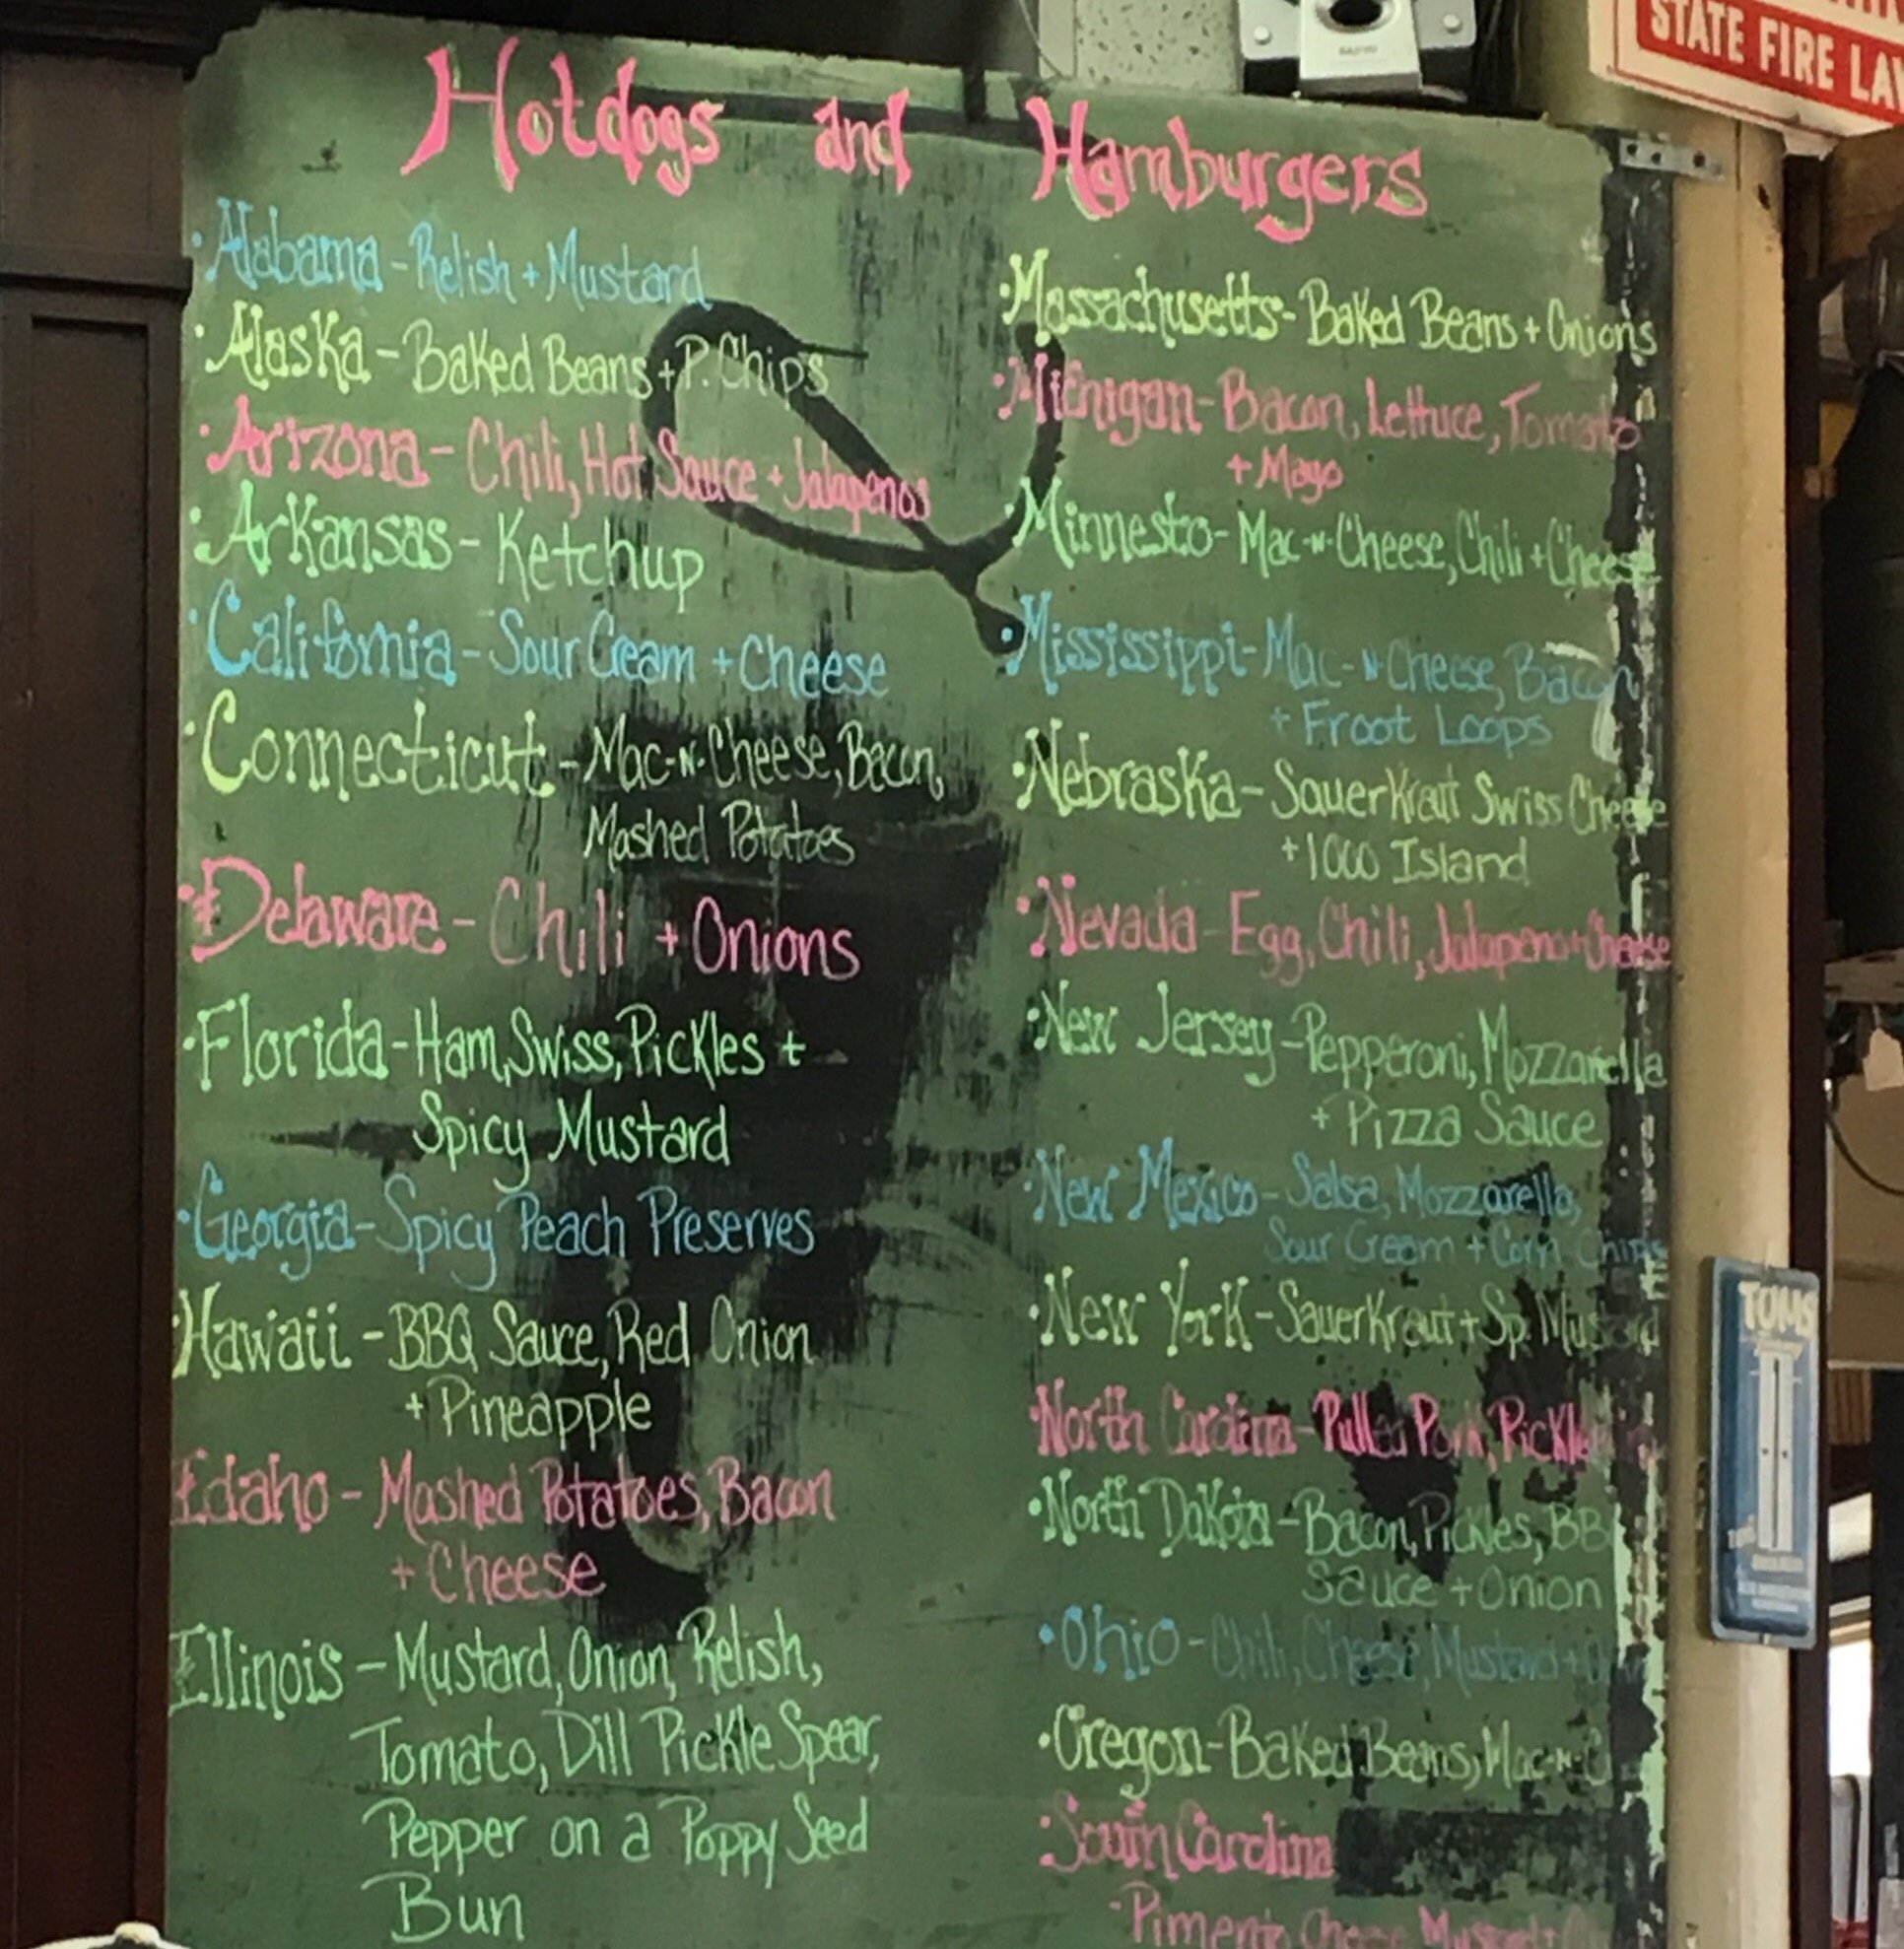 STATE FIRE LA
Hotdogs and Hamburgers
• Alabama - Relish + Mustard
• Alaska - Baked Beans + P. Chips
• Arizona - Chili, Hot Sauce + Jalapenos
• Arkansas - Ketchup
• California - Sour Cream + Cheese
• Connecticut - Mac-N-Cheese, Bacon,
Mashed Potatoes
• Delaware - Chili + Onions
• Florida - Ham, Swiss, Pickles +
Spicy Mustard
• Georgia - Spicy Peach Preserves
• Hawaii - BBQ Sauce, Red Onion
+ Pineapple
Idaho - Mashed Potatoes, Bacon
+ Cheese
Illinois - Mustard, Onion, Relish,
Tomato, Dill Pickle Spear,
Pepper on a Poppy Seed
Bun
• Massachusetts - Baked Beans + Onions
• Michigan - Bacon, Lettuce, Tomato
+ Mayo
• Minnesto - Mac-N-Cheese, Chili + Cheese
• Mississippi - Mac-N-Cheese, Bacon
+ Froot Loops
• Nebraska - SauerKraut Swiss Cheese
+ 1000 Island
• Nevada - Egg, Chili, Jalapeno + Cheese
• New Jersey - Pepperoni, Mozzarella
+ Pizza Sauce
• New Mexico - Salsa, Mozzarella,
Sour Cream + Corn Chips
• New York - SauerKraut + Sp. Mustard
• North Carolina - Pulled Pork, Pickle
• North Dakota - Bacon, Pickles, BB
Sauce + Onion
• Ohio - Chili, Cheese, Mustard +
• Oregon - Baked Beans, Mac-N-C
• South Carolina
- Pimento Cheese Mustard +
TUMS